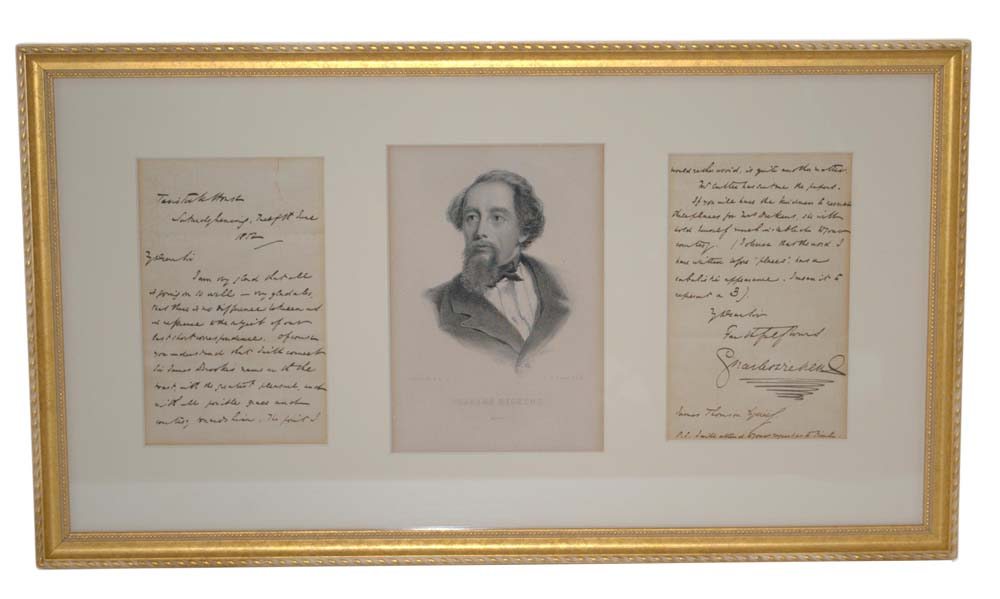 Tavistock House
Saturday Evening, Twelfth June
1852
My Dear Sir
I am very glad that all
is going on so well — very glad also,
that there is no difference between us
in reference to the subject of our
last short correspondence. Of course
you understand that I will connect
Sir James Brooke's name with the
toast, with the greatest pleasure, and
with all possible grace and
courtesy towards him. The point I
would rather avoid, is quite another matter.
Mr has sent me the papers.
If you will have the kindness to reserve
three places for Mrs Dickens, she will
hold herself much indebted to your
courtesy. (I observe that the word I
have written before "places", has a
cabalistic appearance. I mean it to
represent a 3).
My Dear Sir
Faithfully Yours
Charles Dickens
James Thomson Esquire
P.S. I will attend to your request as to
CHARLES DICKENS